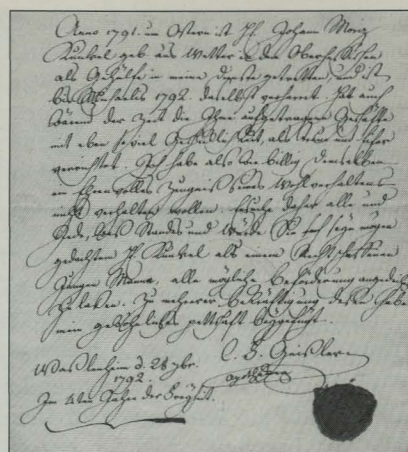 Anno 1791. um Ostern ist H. Johann Moriz
Kunkel geb. aus Wetter in dem Oberhessischen
als Gehülfe in meine Dienste getretten und ist
bis Michaelis 1792. daselbst verharret. Hat auch
während der Zeit die Ihme aufgetragene Geschäfte
mit eben so viel Geschicklichkeit, als treue und
verrichtet. Ich habe also wie billig demselben
ein Ehrenvolles Zeugniss seines Wohlverhaltens
nicht verhalten wollen. Ersuche daher alle und
Jede, Standes und Würde Sie seyn mögen
gedachtem H. Kunkel als einem Rechtschaffenen
Jungen Manne alle mögliche Beförderung angedeihen
zu lassen. Zu mehrerer Bekräftigung dessen habe
mein gewöhnliches pettschaft beygefügt.
Wasslenheim d. 28 7br. C. Geissler
1792. apotheker
Im 4ten Jahre der Freyheit.